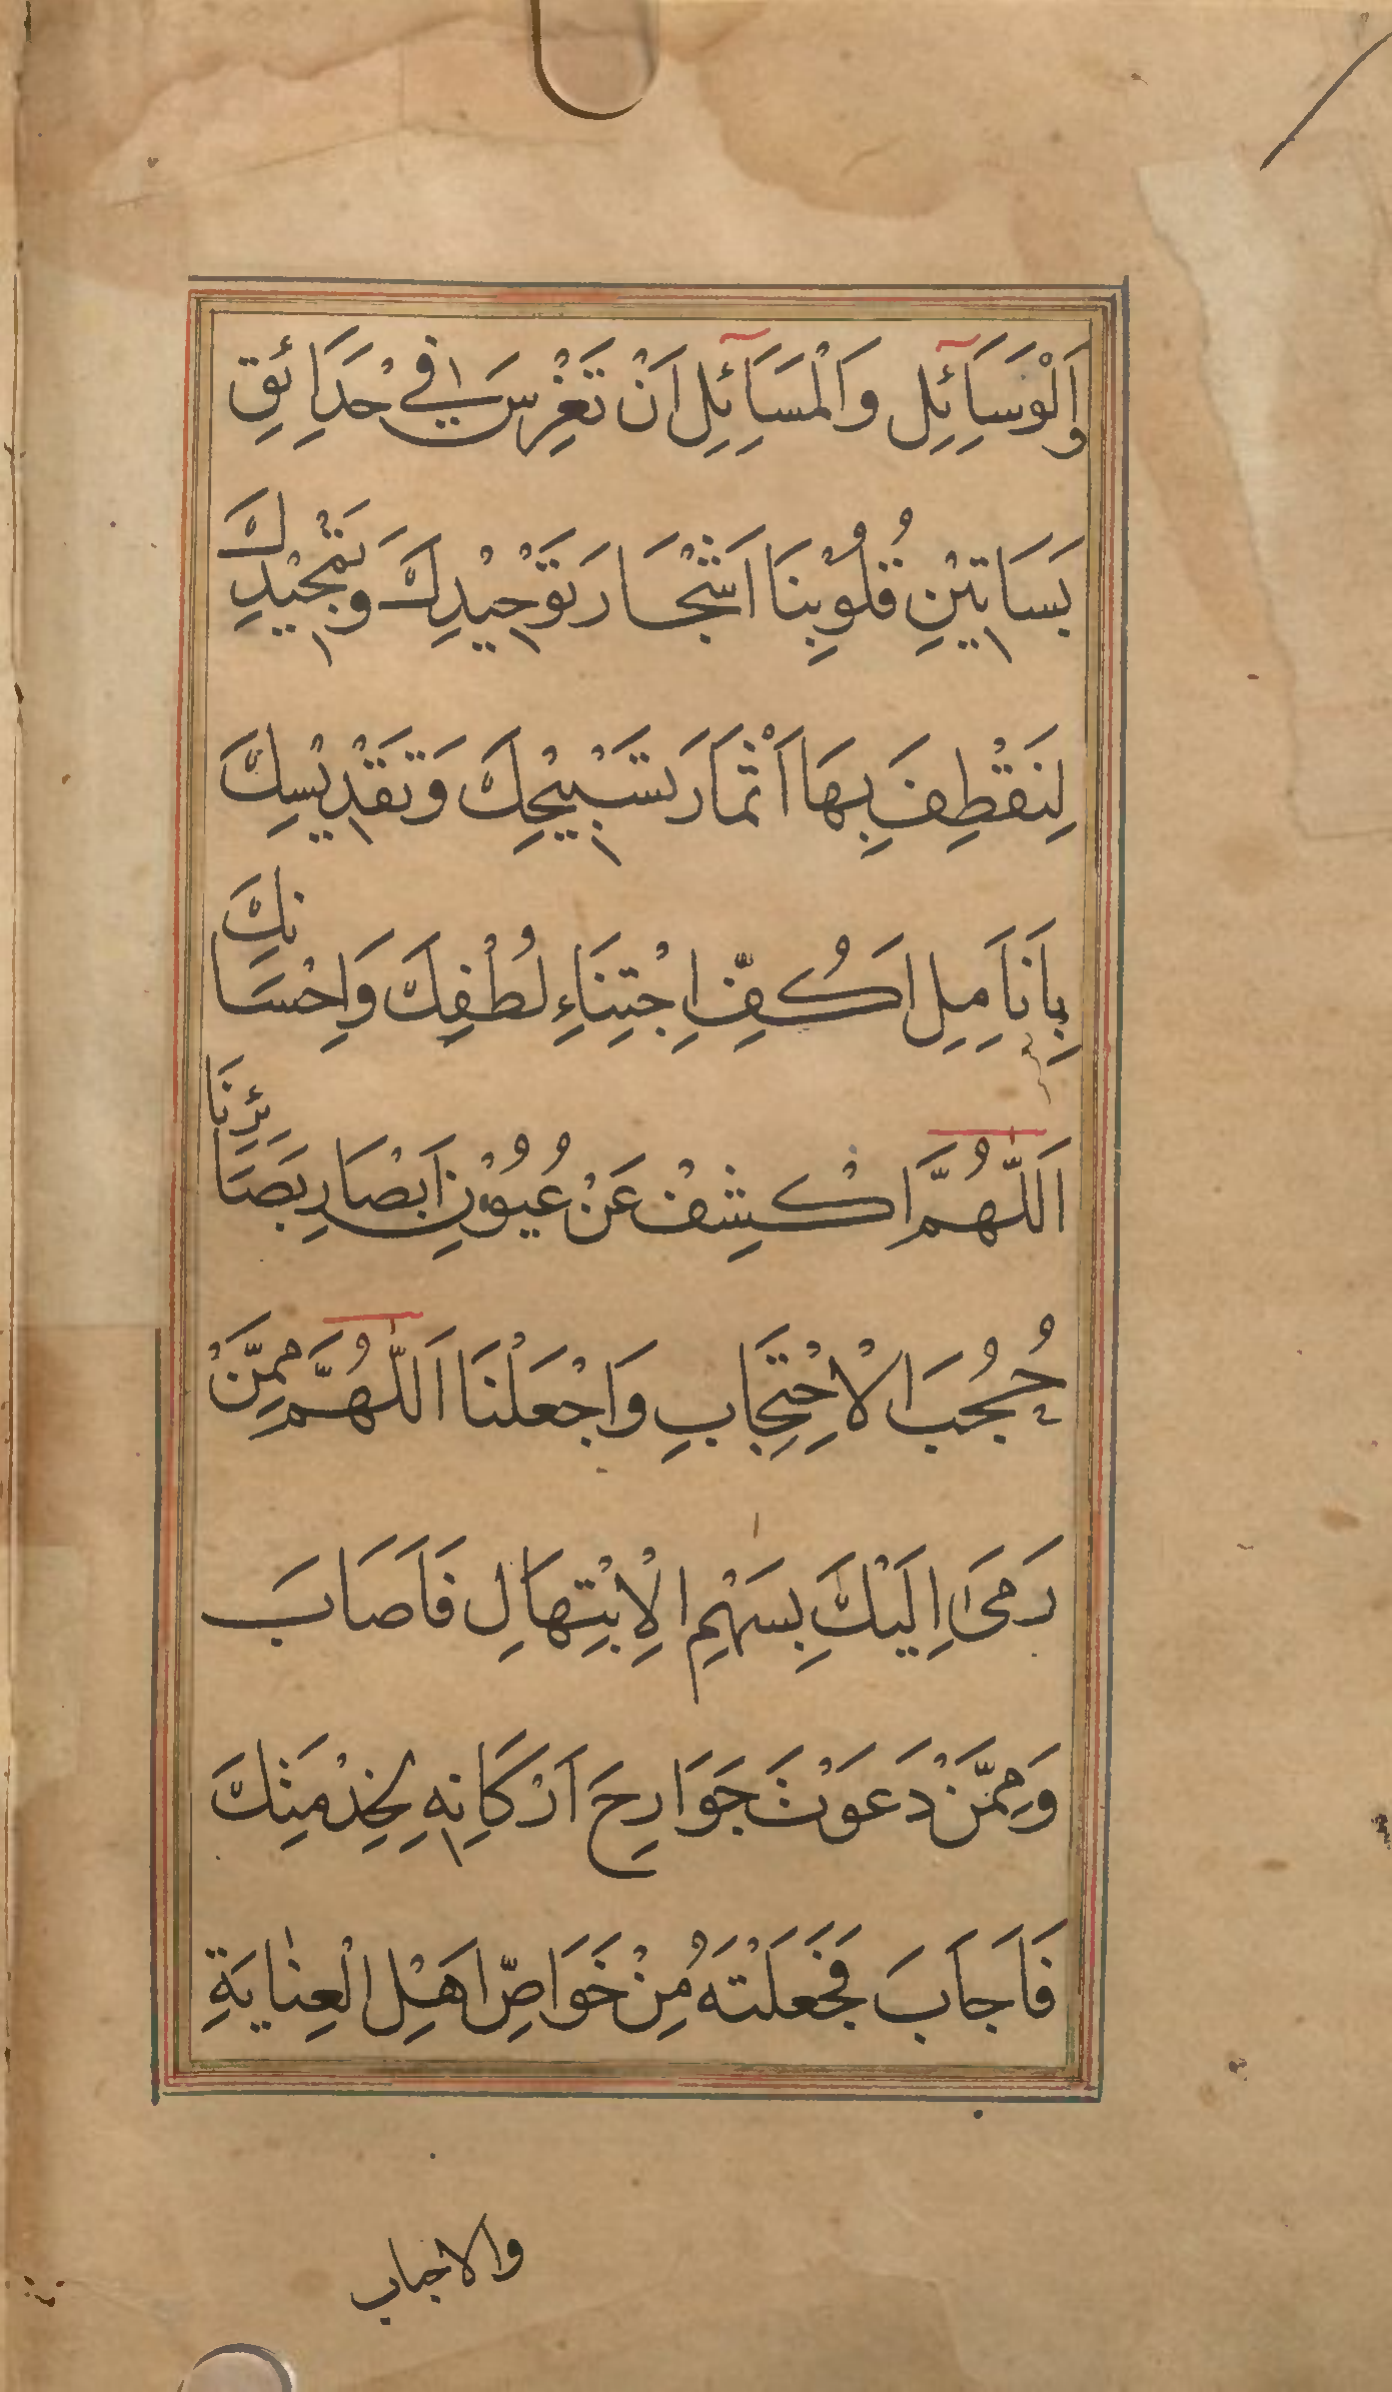 وَالْوَسَائِلِ وَالْمَسَائِلِ اَنْ تَغْرِسَ فِي حَدَائِقِ
بَسَاتِيْنِ قُلُوْبِنَا اَشْجَارَ تَوْحِيْدِكَ وَتَمْجِيْدِكَ
لِنَقْطِفَ بِهَا اَثْمَارَ تَسْبِيْحِكَ وَتَقْدِيْسِكَ
بِاَنَامِلِ اَكُفِّ اِجْتِنَاءِ لُطْفِكَ وَاِحْسَانِكَ
اَللّٰهُمَّ اكْشِفْ عَنْ عُيُوْنِ اَبْصَارِ بَصَائِرِنَا
حُجُبَ الْاِحْتِجَابِ وَاجْعَلْنَا اَللّٰهُمَّ مِمَّنْ
رَمٰى اِلَيْكَ بِسَهْمِ الْاِبْتِهَالِ فَاَصَابَ
وَمِمَّنْ دَعَوْتَ جَوَارِحَ اَرْكَانِهِ لِخِدْمَتِكَ
فَاَجَابَ فَجَعَلْتَهُ مِنْ خَوَاصِّ اَهْلِ الْعِنَايَةِ
والاحباب